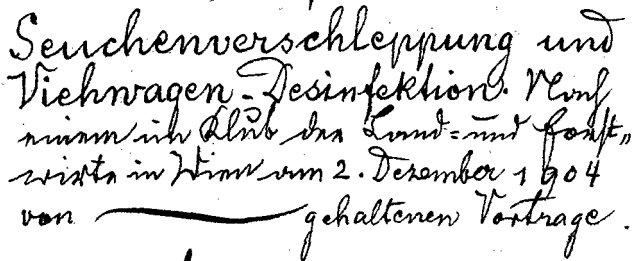 Seuchenverschleppung und
Viehwagen-Desinfektion. Nach
einem im Klub der Land= und Forst„
wirte in Wien am 2. Dezember 1904
von ——— gehaltenen Vortrage.